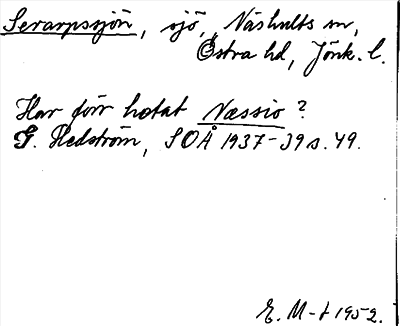 Serarpssjön, sjö, Näshults sn,
Östra hd, Jönk. l.
Har förr hetat Næssio?
G. Hedström, SOÅ 1937-39 s. 49.
E. M-t 1952.